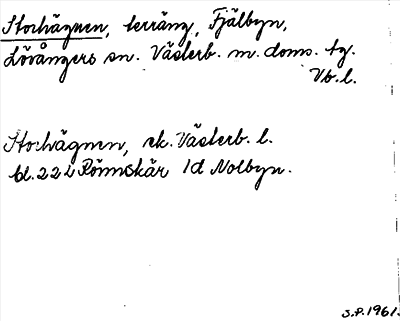 Storhägnen, terräng, Fjälbyn,
Lövångers sn. Västerb. m. doms. tg.
Vb. l.
Storhägnen, ek. Västerb. l.
bl. 22 i Rönnskär 1d Nolbyn.
S.P. 1961.